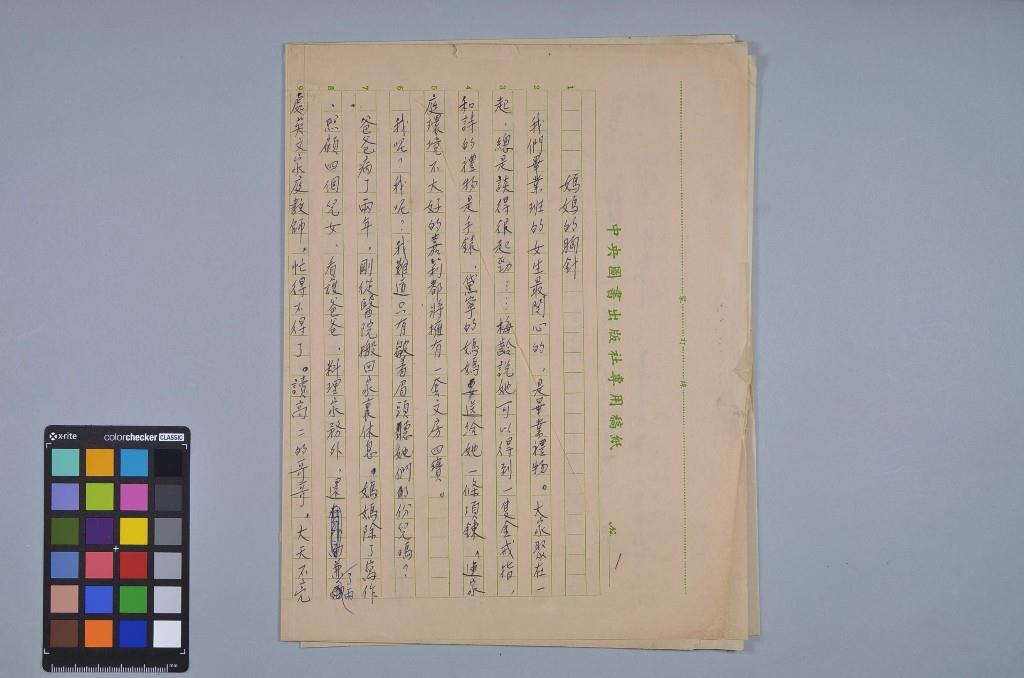 中央圖書出版社專用稿紙
No. 1
裝 訂 線
媽媽的胸針
我們畢業班的女生最関心的，是畢業禮物。大家聚在一
起，總是談得很起勁……梅齡說她可以得到一隻金戒指，
和詩的禮物是手錶，黛寧的媽媽要送給她一條項鍊，連家
庭環境不大好的嘉莉都將擁有一套文房四寶。
我呢？我呢？我難道只有皺著眉頭聽她們的份兒嗎？
爸爸病了兩年，剛從醫院搬回家裏休息。媽媽除了寫作
、照顧四個兒女、看護爸爸、料理家務外，還兼了兩
處英文家庭教師。忙得不得了。讀高二的哥哥，大天不亮
1
2
3
4
5
6
7
8
9
x-rite
colorchecker CLASSIC
mm